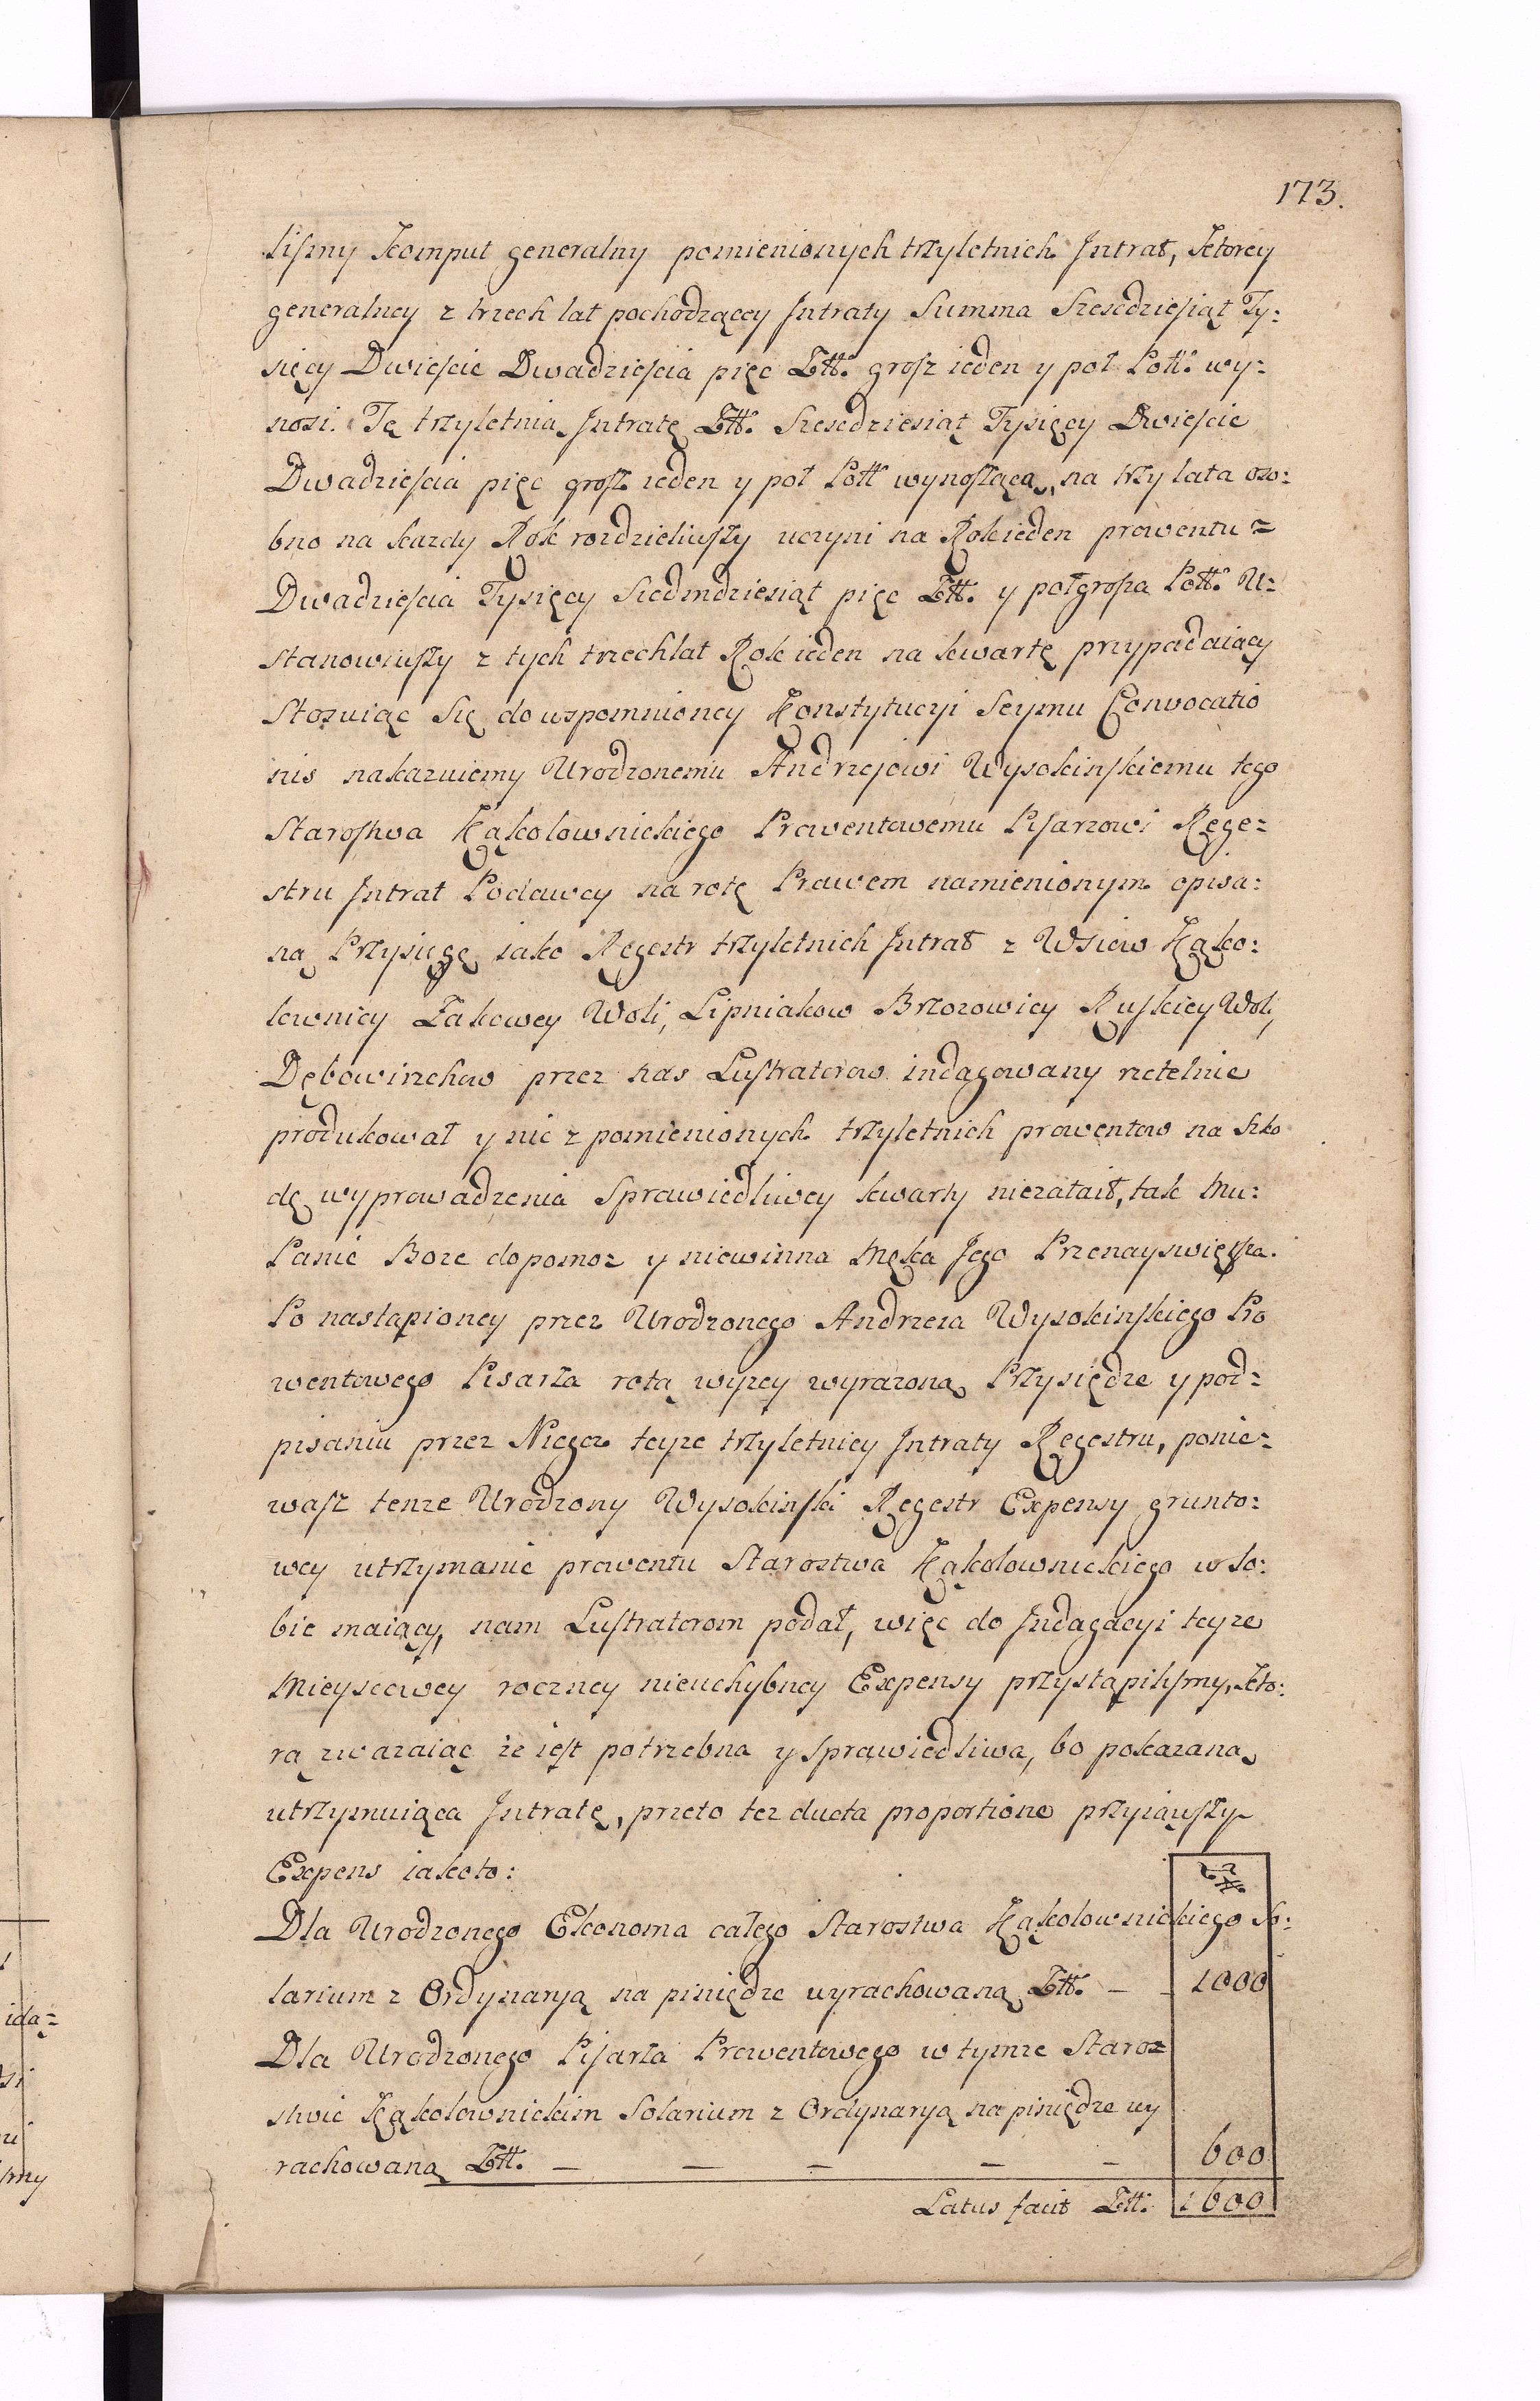 173.
liſmy Komput generalny pomienionych trzyletnich Jntrat, Ktorey
generalney z trzech lat pochodzącey Jntraty Summa Szescdzieſiąt Ty:
sięcy Dwieſcie Dwadzieſcia pięc Złł. groſz ieden y poł Polł. wy:
nosi. Tę trzyletnią Jntratę Złł. Szescdziesiąt Tysięcy Dwieſcie
Dwadzieſcia pięc groſz ieden y poł Polł wynoſzącą, na trzy lata oso:
bno na kazdy Rok rozdzieliwſzy uczyni na Rok ieden prowentu =
Dwadzieſcia Tysięcy Siedmdziesiąt pięc Złł. y poł groſza Polł. U:
stanowiwſzy z tych trzech lat Rok ieden na kwartę przypadaiący
Stosuiąc Się do wspomnioney Konstytucyi Seymu Convocatio
nis nakazuiemy Urodzonemu Andrzejowi Wysokinſkiemu tego
Staroſtwa Kąkolownickiego Prowentowemu Piſarzowi Rege=
stru Jntrat Podawcy na rotę Prawem namienionym opisa:
ną Przysięgę iako Regestr trzyletnich Jntrat z Wsiow Kąko:
lownicy Zakowey Woli, Lipniakow Brzozowicy Ruſkiey Woli,
Dębowirzchow przez nas Luſtratorow indagowany rzetelnie
produkował y nic z pomienionych trzyletnich prowentow na szko
dę wyprowadzenia Sprawiedliwey kwarty niezataił, tak Mu:
Panie Boze dopomoz y niewinna Męka Jego Przenayswiętſza.
Po nastąpioney przez Urodzonego Andrzeia Wysokinſkiego Pro
wentowego Pisarza rotą wyzey wyrazoną Przysiędze y pod=
pisaniu przez Niego teyze trzyletniey Jntraty Regestru, ponie=
waſz tenze Urodzony Wysokinſki Regestr Expensy grunto:
wey utrzymanie prowentu Starostwa Kąkolownickiego w so:
bie maiącey, nam Luſtratorom podał, więc do Jndagacyi teyze
Mieyscowey roczney nieuchybney Expensy przystąpiliſmy, Kto:
rą zwazaiąc że ieſt potrzebna y sprawiedliwa, bo pokazaną
utrzymuiąca Jntratę, przeto tez ducta proportione przyiąwſzy
Expens iakoto:
Złł.
Dla Urodzonego Ekonoma całego Starostwa Kąkolownickiego So:
larium z Ordynaryą na piniędze wyrachowaną Złł. — — 1000
Dla Urodzonego Piſarza Prowentowego w tymze Staroz
stwie Kąkolownickim Solarium z Ordynaryą na piniędze wy
rachowaną Złł. — — — — — 600
Latus facit Złł. 1600